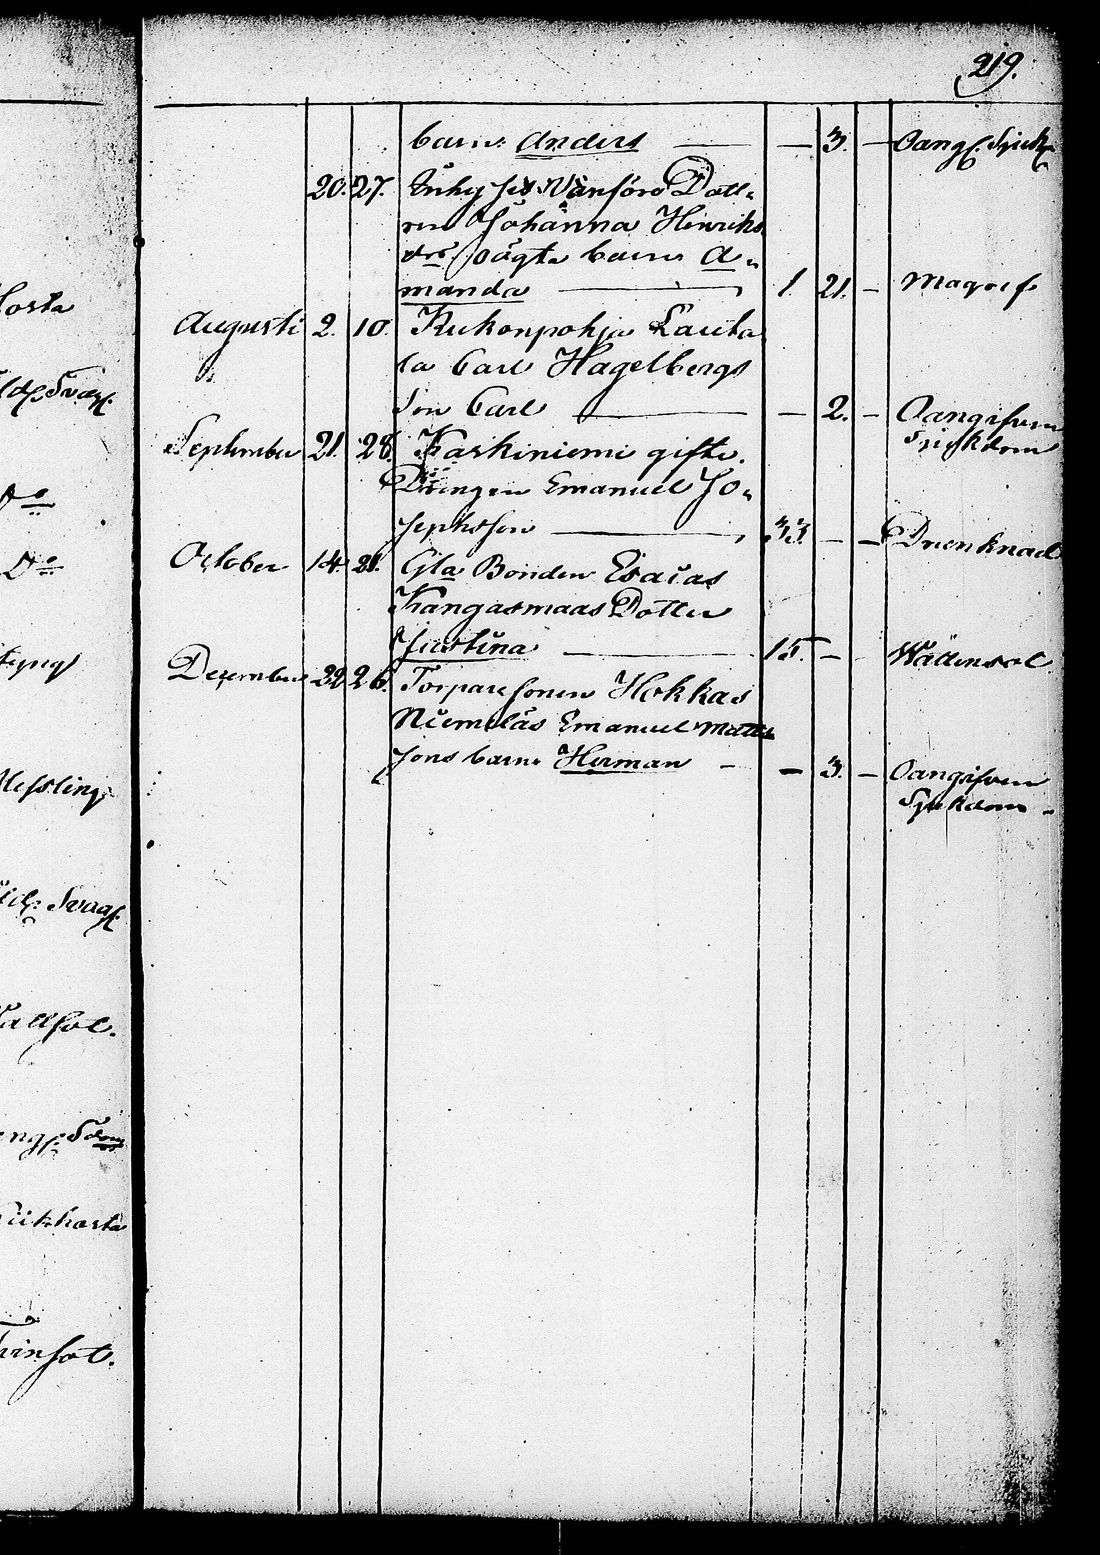 219.
barn Anders — — 3. — Oangf. Sjukd.
20. 27. Inhyses Vanföra Dott-
ren Johanna Hinriks
drs oägta barn A-
manda — 1. 21. — Magref
Augusti 2. 10. Kukonpohja Lauta
la Carl Hagelbergs
Son Carl — — 2. — Oangifven
Sjukdom
September 21. 28. Karkiniemi gifte
Drengen Emanuel Jo-
sephsson — 33. — — Drunknad
October 14. 21. Gla Bonden Esaias
Kangasmaas Dotter
Justina — 15. — Wattensot
December 22 26. Torparesonen Hokkas
Niemeläs Emanuel Matts
sons barn Herman — — 3. — Oangifven
Sjukdom
hosta
Svagh.
Do
Do
Messling
Svagh.
Vattsot.
Kikhosta
Tvinsot.